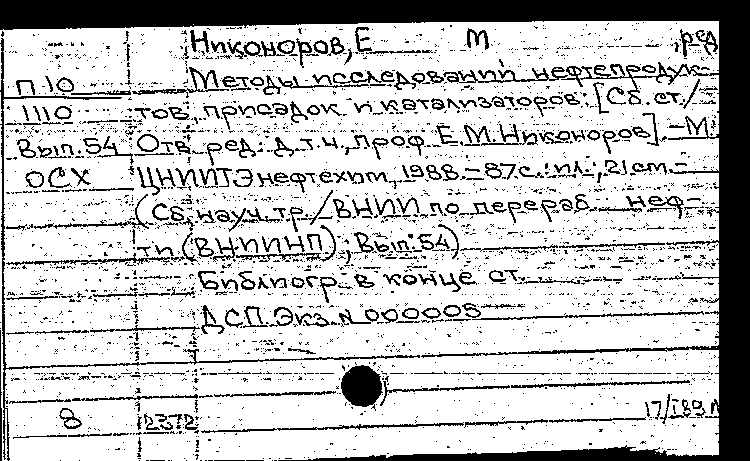 Никоноров, Е М , ред
П 10 Методы исследований нефтепродук-
1110 тов, присадок и катализаторов: [Сб. ст./
Вып. 54 Отв. ред. д.т.н., проф. Е.М. Никоноров]. -М.:
ОСХ ЦНИИТЭнефтехим, 1988. - 87с.: ил.; 21 см. -
(Сб. науч. тр./ВНИИ по перераб. неф-
ти (ВНИИНП); Вып. 54)
Библиогр. в конце ст.
ДСП. Экз. N 000005
8 2372 17/I 89